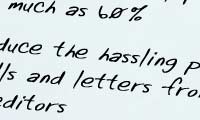 much as 60%
duce the hassling p
lls and letters fro
editors